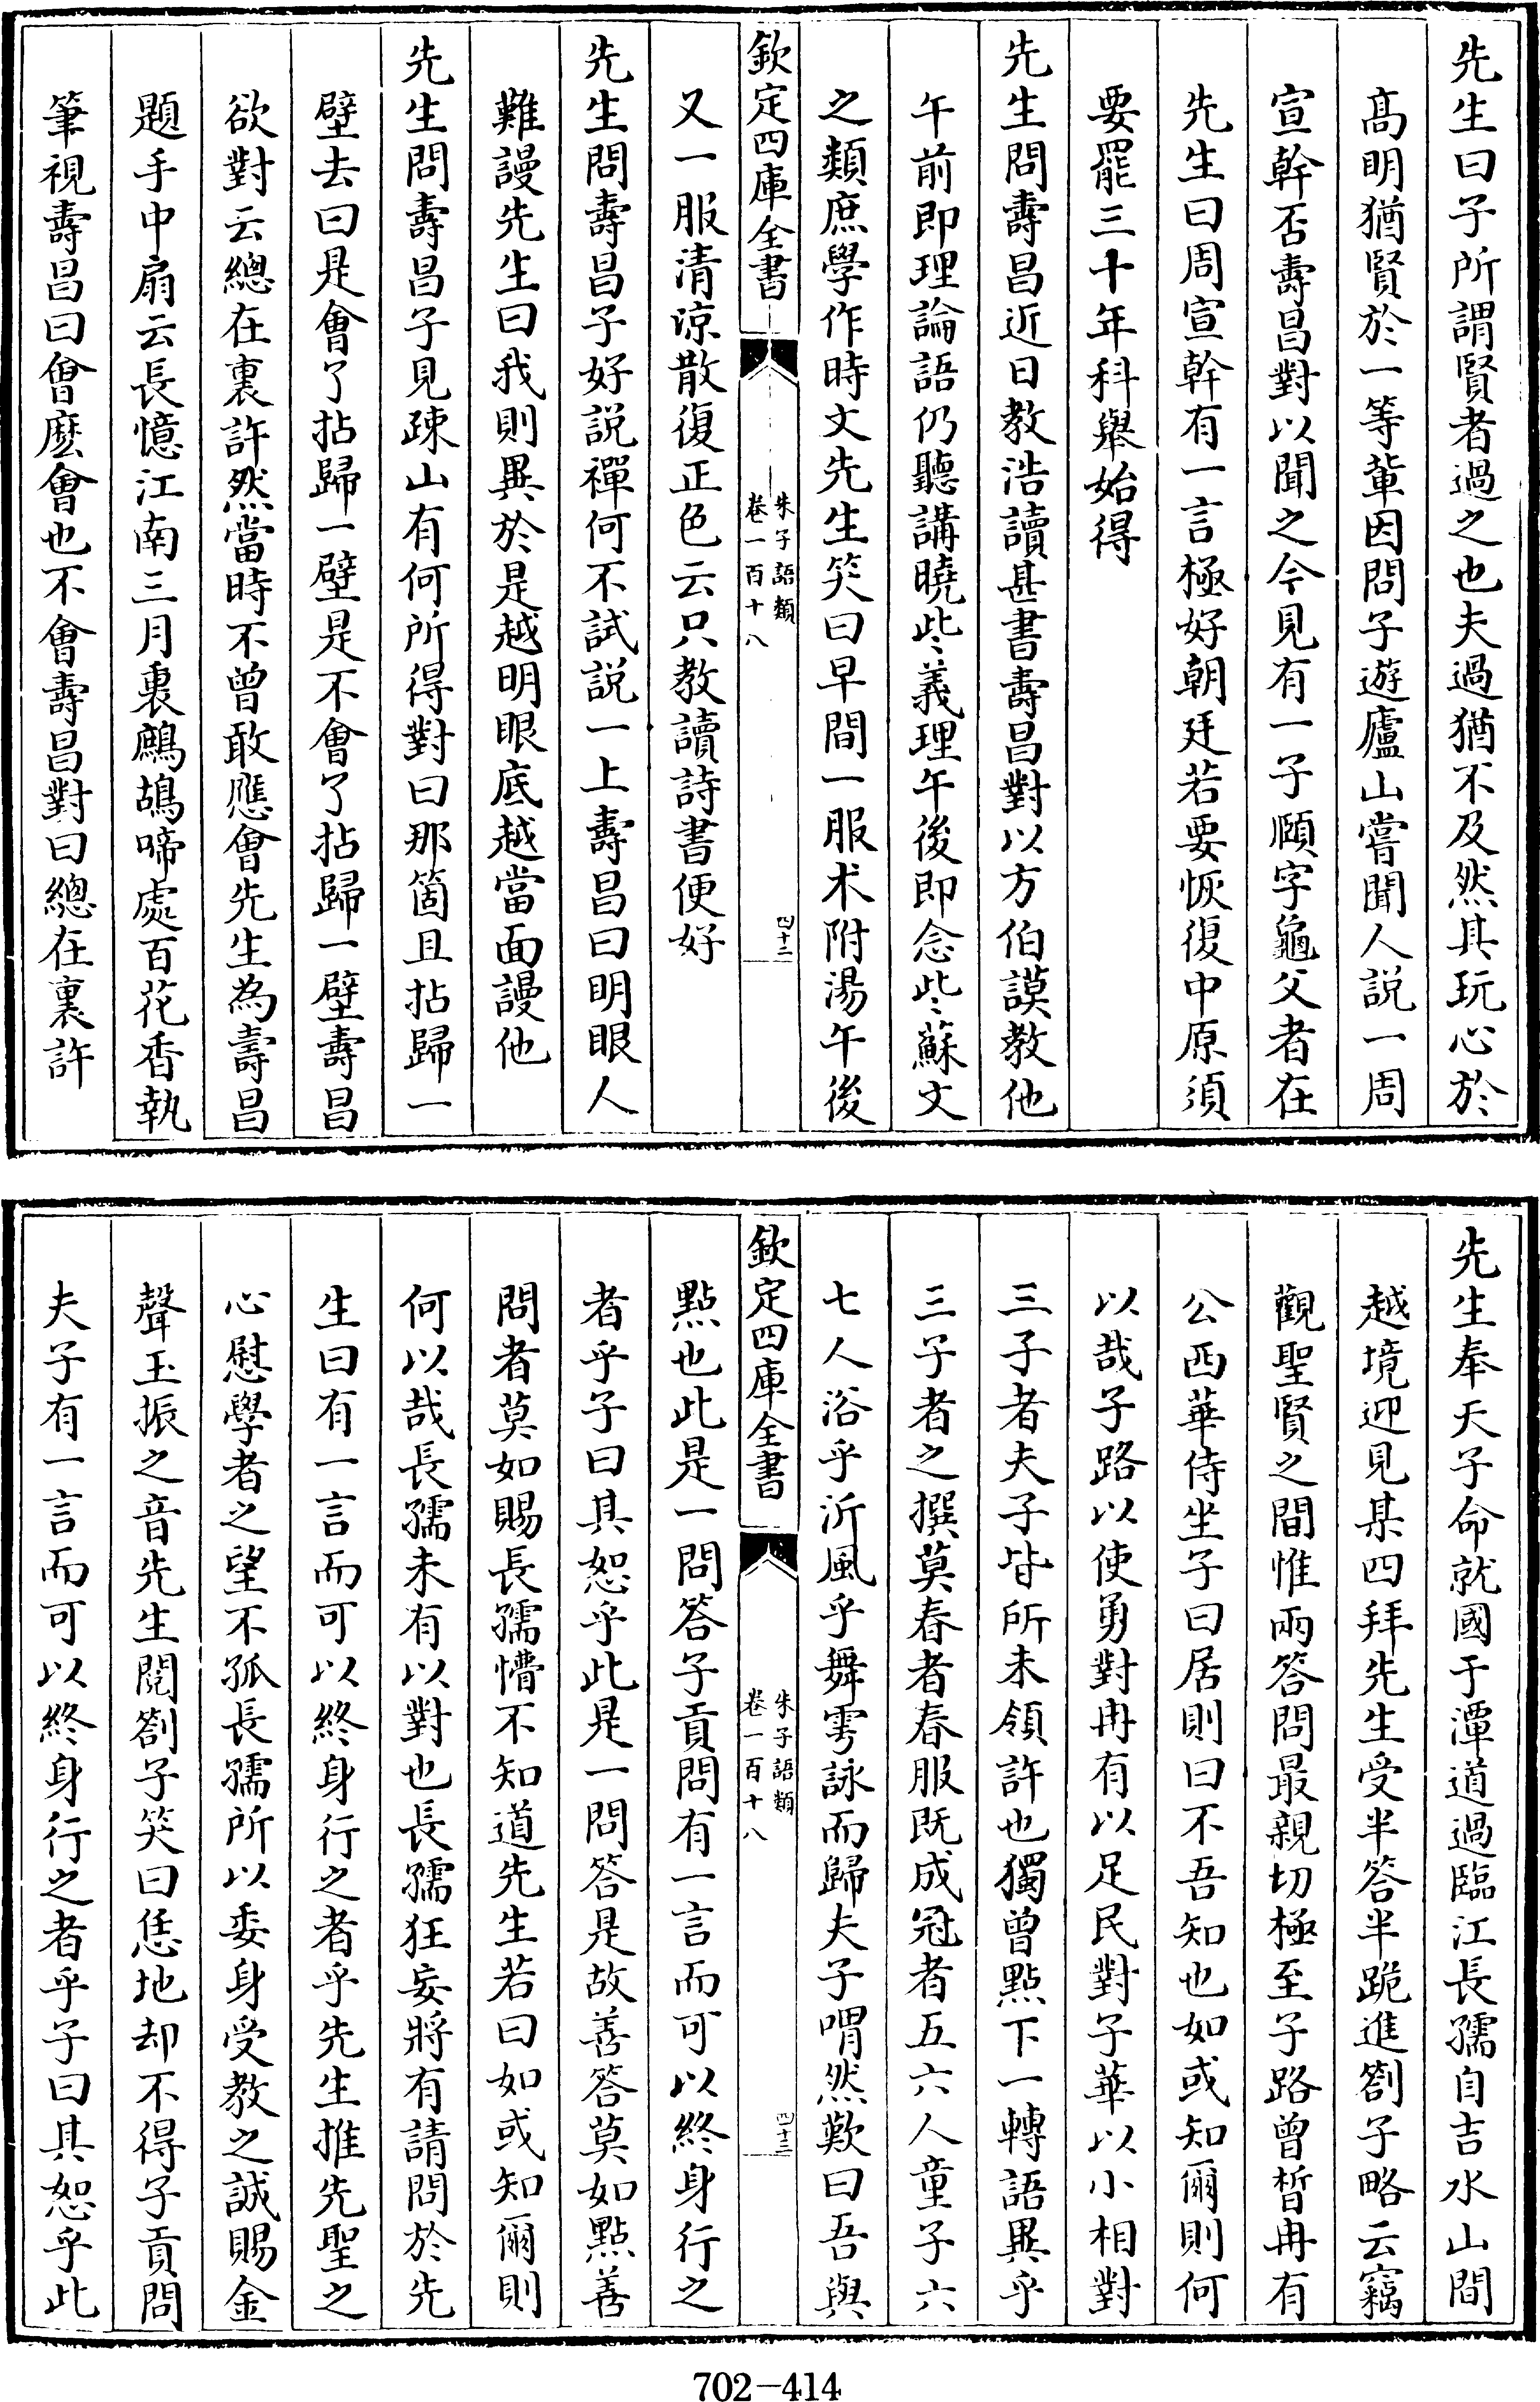 先生曰子所謂賢者過之也夫過猶不及然其玩心於
高明猶賢於一等輩因問子遊廬山嘗聞人説一周
宣幹否壽昌對以聞之今見有一子頤字龜父者在
先生曰周宣幹有一言極好朝廷若要恢復中原須
要罷三十年科舉始得
先生問壽昌近日教浩讀甚書壽昌對以方伯謨教他
午前即理論語仍聽講曉些義理午後即念些蘇文
之類庶學作時文先生笑曰早間一服术附湯午後
欽定四庫全書
朱子語類
卷一百十八
四十二
又一服清涼散復正色云只教讀詩書便好
先生問壽昌子好説禪何不試説一上壽昌曰明眼人
難謾先生曰我則異於是越明眼底越當面謾他
先生問壽昌子見疎山有何所得對曰那箇且拈歸一
壁去曰是會了拈歸一壁是不會了拈歸一壁壽昌
欲對云總在裏許然當時不曾敢應會先生為壽昌
題手中扇云長憶江南三月裏鷓鴣啼處百花香執
筆視壽昌曰會麽會也不會壽昌對曰總在裏許
先生奉天子命就國于潭道過臨江長孺自吉水山間
越境迎見某四拜先生受半答半跪進劄子略云竊
觀聖賢之間惟兩答問最親切極至子路曾晳冉有
公西華侍坐子曰居則曰不吾知也如或知爾則何
以哉子路以使勇對冉有以足民對子華以小相對
三子者夫子皆所未領許也獨曾點下一轉語異乎
三子者之撰莫春者春服既成冠者五六人童子六
七人浴乎沂風乎舞雩詠而歸夫子喟然歎曰吾與
欽定四庫全書
朱子語類
卷一百十八
四十三
點也此是一問答子貢問有一言而可以終身行之
者乎子曰其恕乎此是一問答是故善答莫如點善
問者莫如賜長孺懵不知道先生若曰如或知爾則
何以哉長孺未有以對也長孺狂妄將有請問於先
生曰有一言而可以終身行之者乎先生推先聖之
心慰學者之望不孤長孺所以委身受教之誠賜金
聲玉振之音先生閱劄子笑曰恁地却不得子貢問
夫子有一言而可以終身行之者乎子曰其恕乎此
702-414